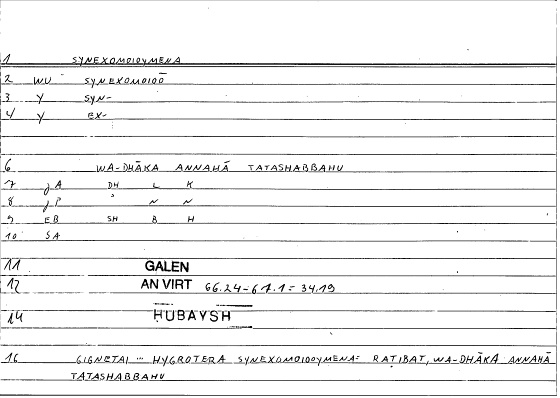 1 SYNEXOMOIOYMENA
2 WU SYNEXOMOIOŌ
3 Y SYN-
4 Y EX-
6 WA-DHĀKA ANNAHĀ TATASHABBAHU
7 JA DH L K
8 JP ' N N
9 EB SH B H
10 SA
11 GALEN
12 AN VIRT 66.24-67.1 = 34.19
14 ḤUBAYSH
16 GIGNETAI ... HYGROTERA SYNEXOMOIOYMENA = RAṬIBAT, WA-DHĀKA ANNAHĀ
TATASHABBAHU